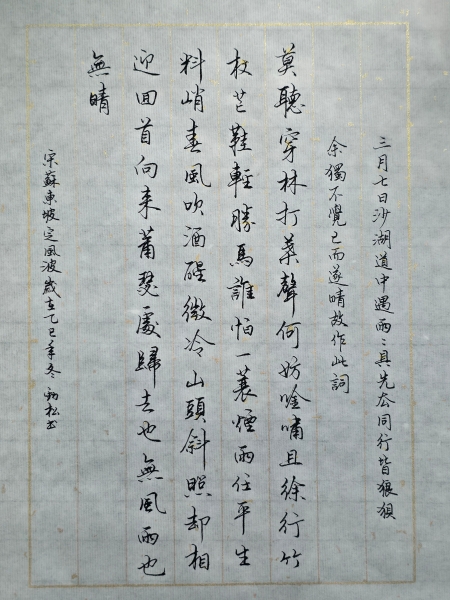 三月七日沙湖道中遇雨〻具先去同行皆狼狽
余獨不覺已而遂晴故作此詞
莫聽穿林打葉聲何妨吟嘯且徐行竹
杖芒鞋輕勝馬誰怕一蓑煙雨任平生
料峭春風吹酒醒微冷山頭斜照却相
迎回首向来蕭瑟處歸去也無風雨也
無晴
宋蘇東坡定風波歲在乙巳年冬松書